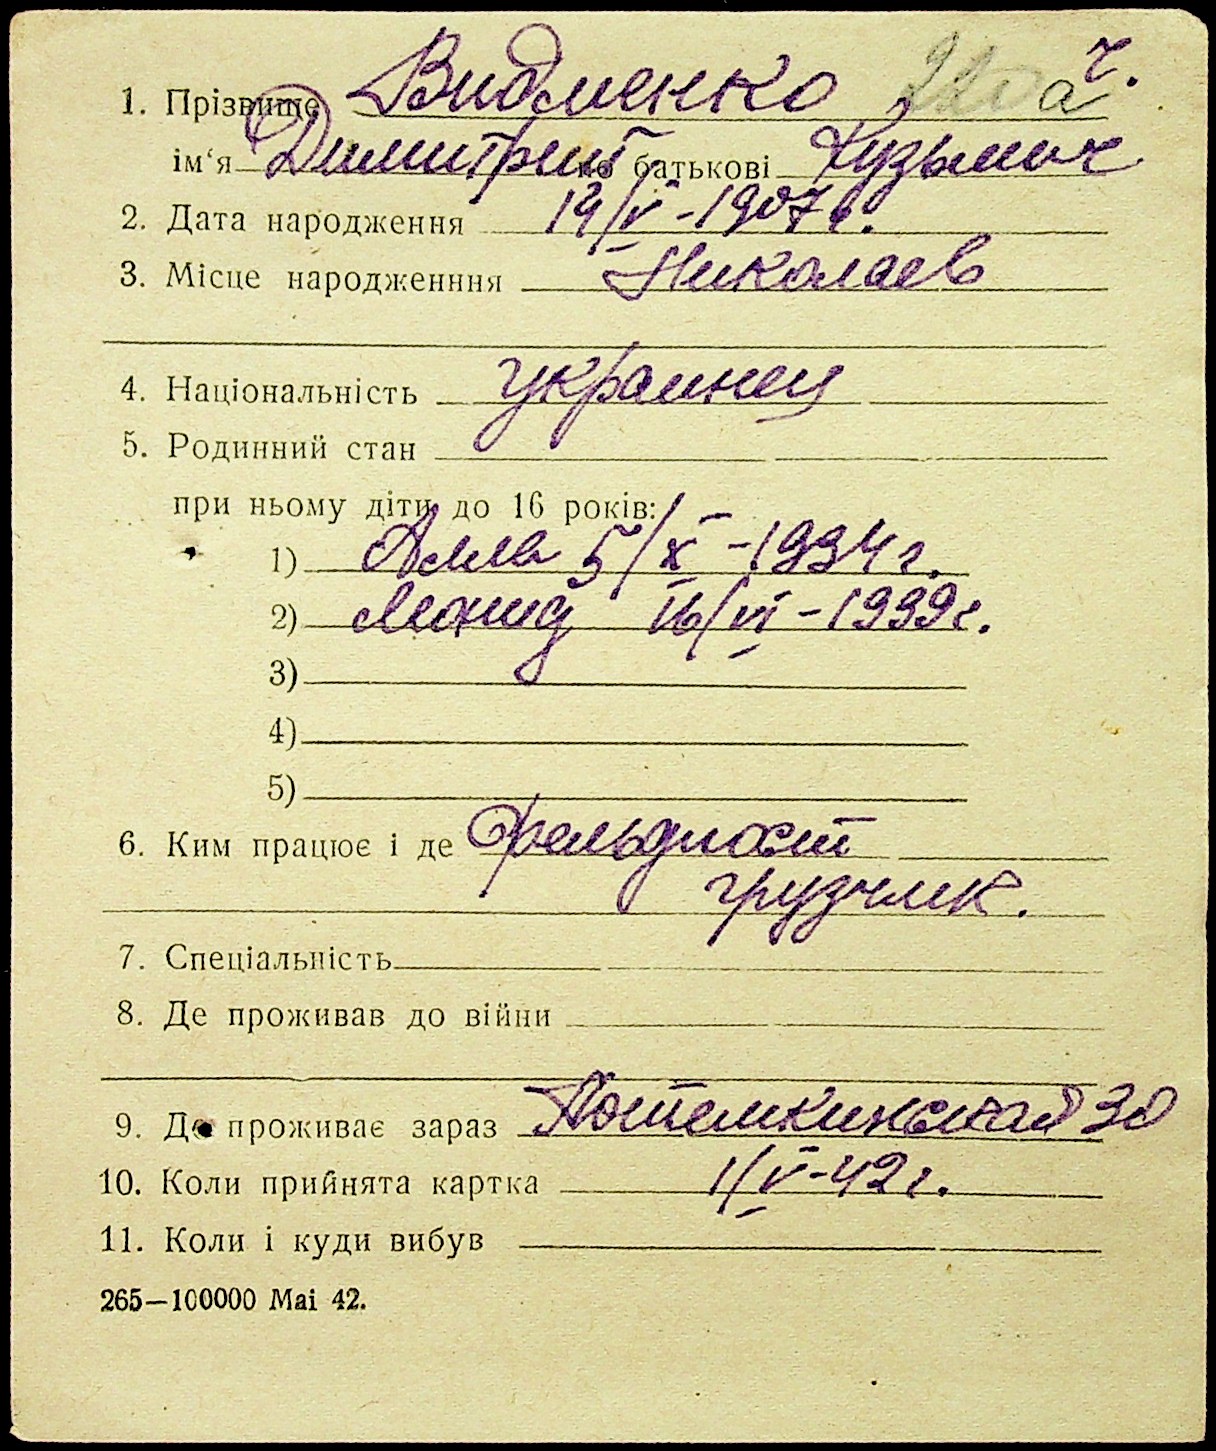 1. Прізвище Видменко ч.
ім'я Димитрий по батькові Кузьмич
2. Дата народження 19/V-1907 г.
3. Місце народженння Николаев
4. Національність украинец
5. Родинний стан
при ньому діти до 16 років:
1) Алла 5/X-1934 г.
2) Леонид 16/VI-1939 г.
3)
4)
5)
6. Ким працює і де Фельдпост
грузчик.
7. Спеціальність
8. Де проживав до війни
9. Де проживає зараз Потемкинская 30
10. Коли прийнята картка 1/V-42 г.
11. Коли і куди вибув
265—100000 Mai 42.